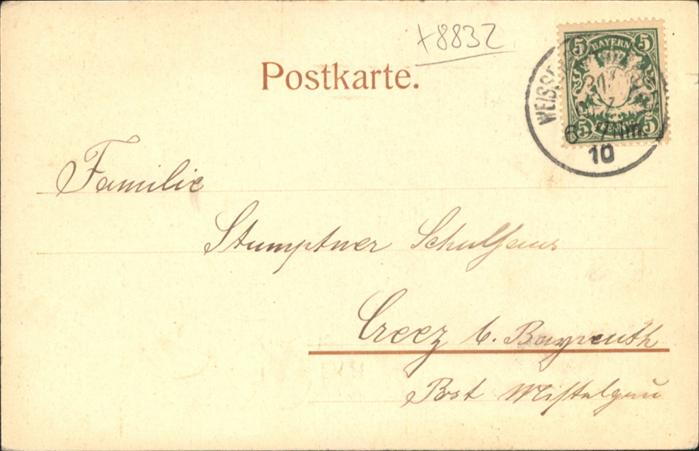 +8832
Postkarte.
5 BAYERN 5
5 PFENNIG 5
WEISSE
10
Familie
Stumptner Schulhaus
Creez b. Bayreuth
Post Mistelgau